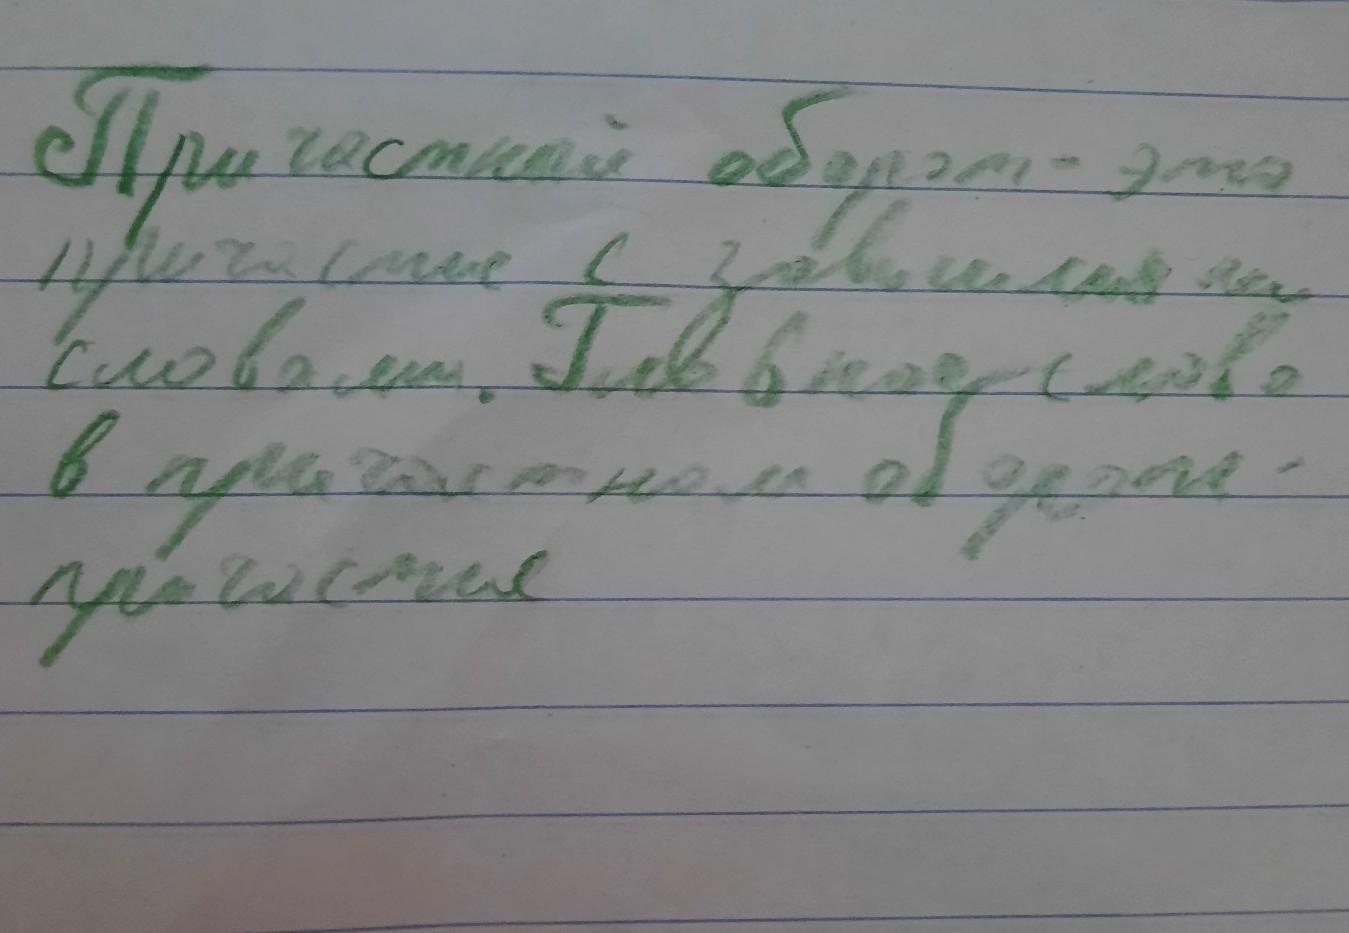 Причастный оборот - это
причастие с зависимыми
словами. Главное слово
в причастном обороте -
причастие